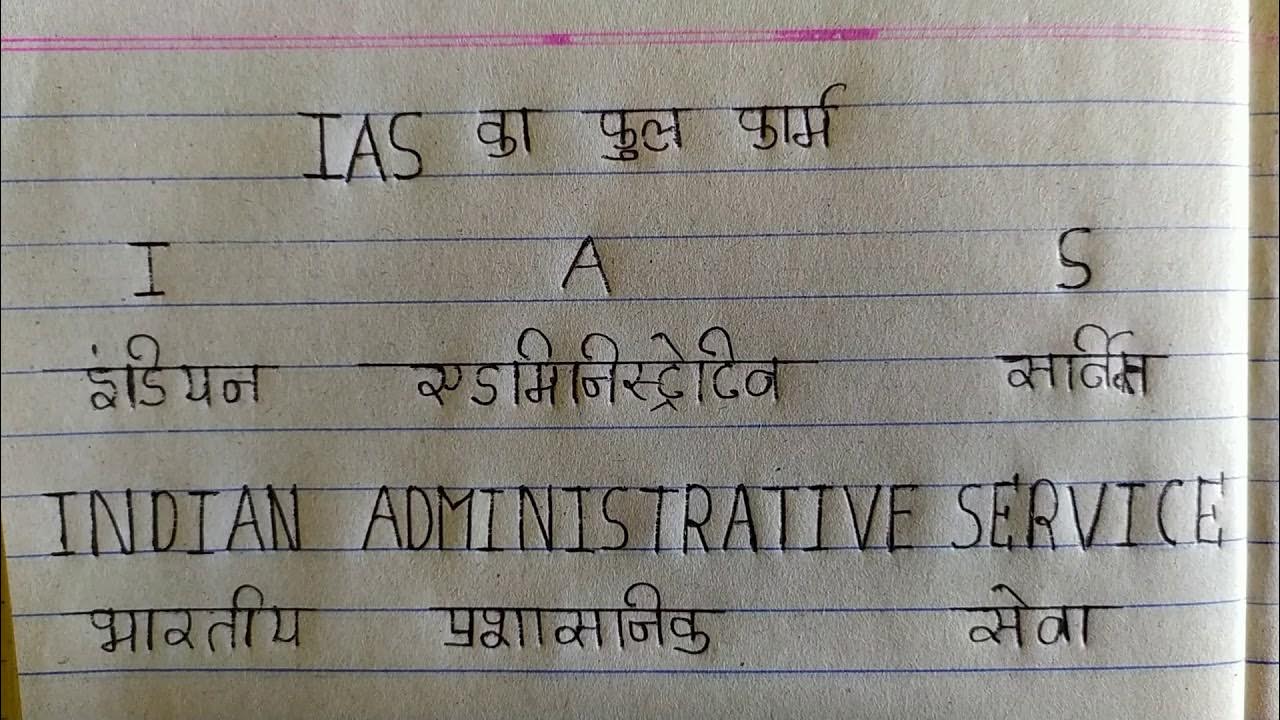 IAS का फुल फार्म
I A S
इंडियन एडमिनिस्ट्रेटिव सर्विस
INDIAN ADMINISTRATIVE SERVICE
भारतीय प्रशासनिक सेवा